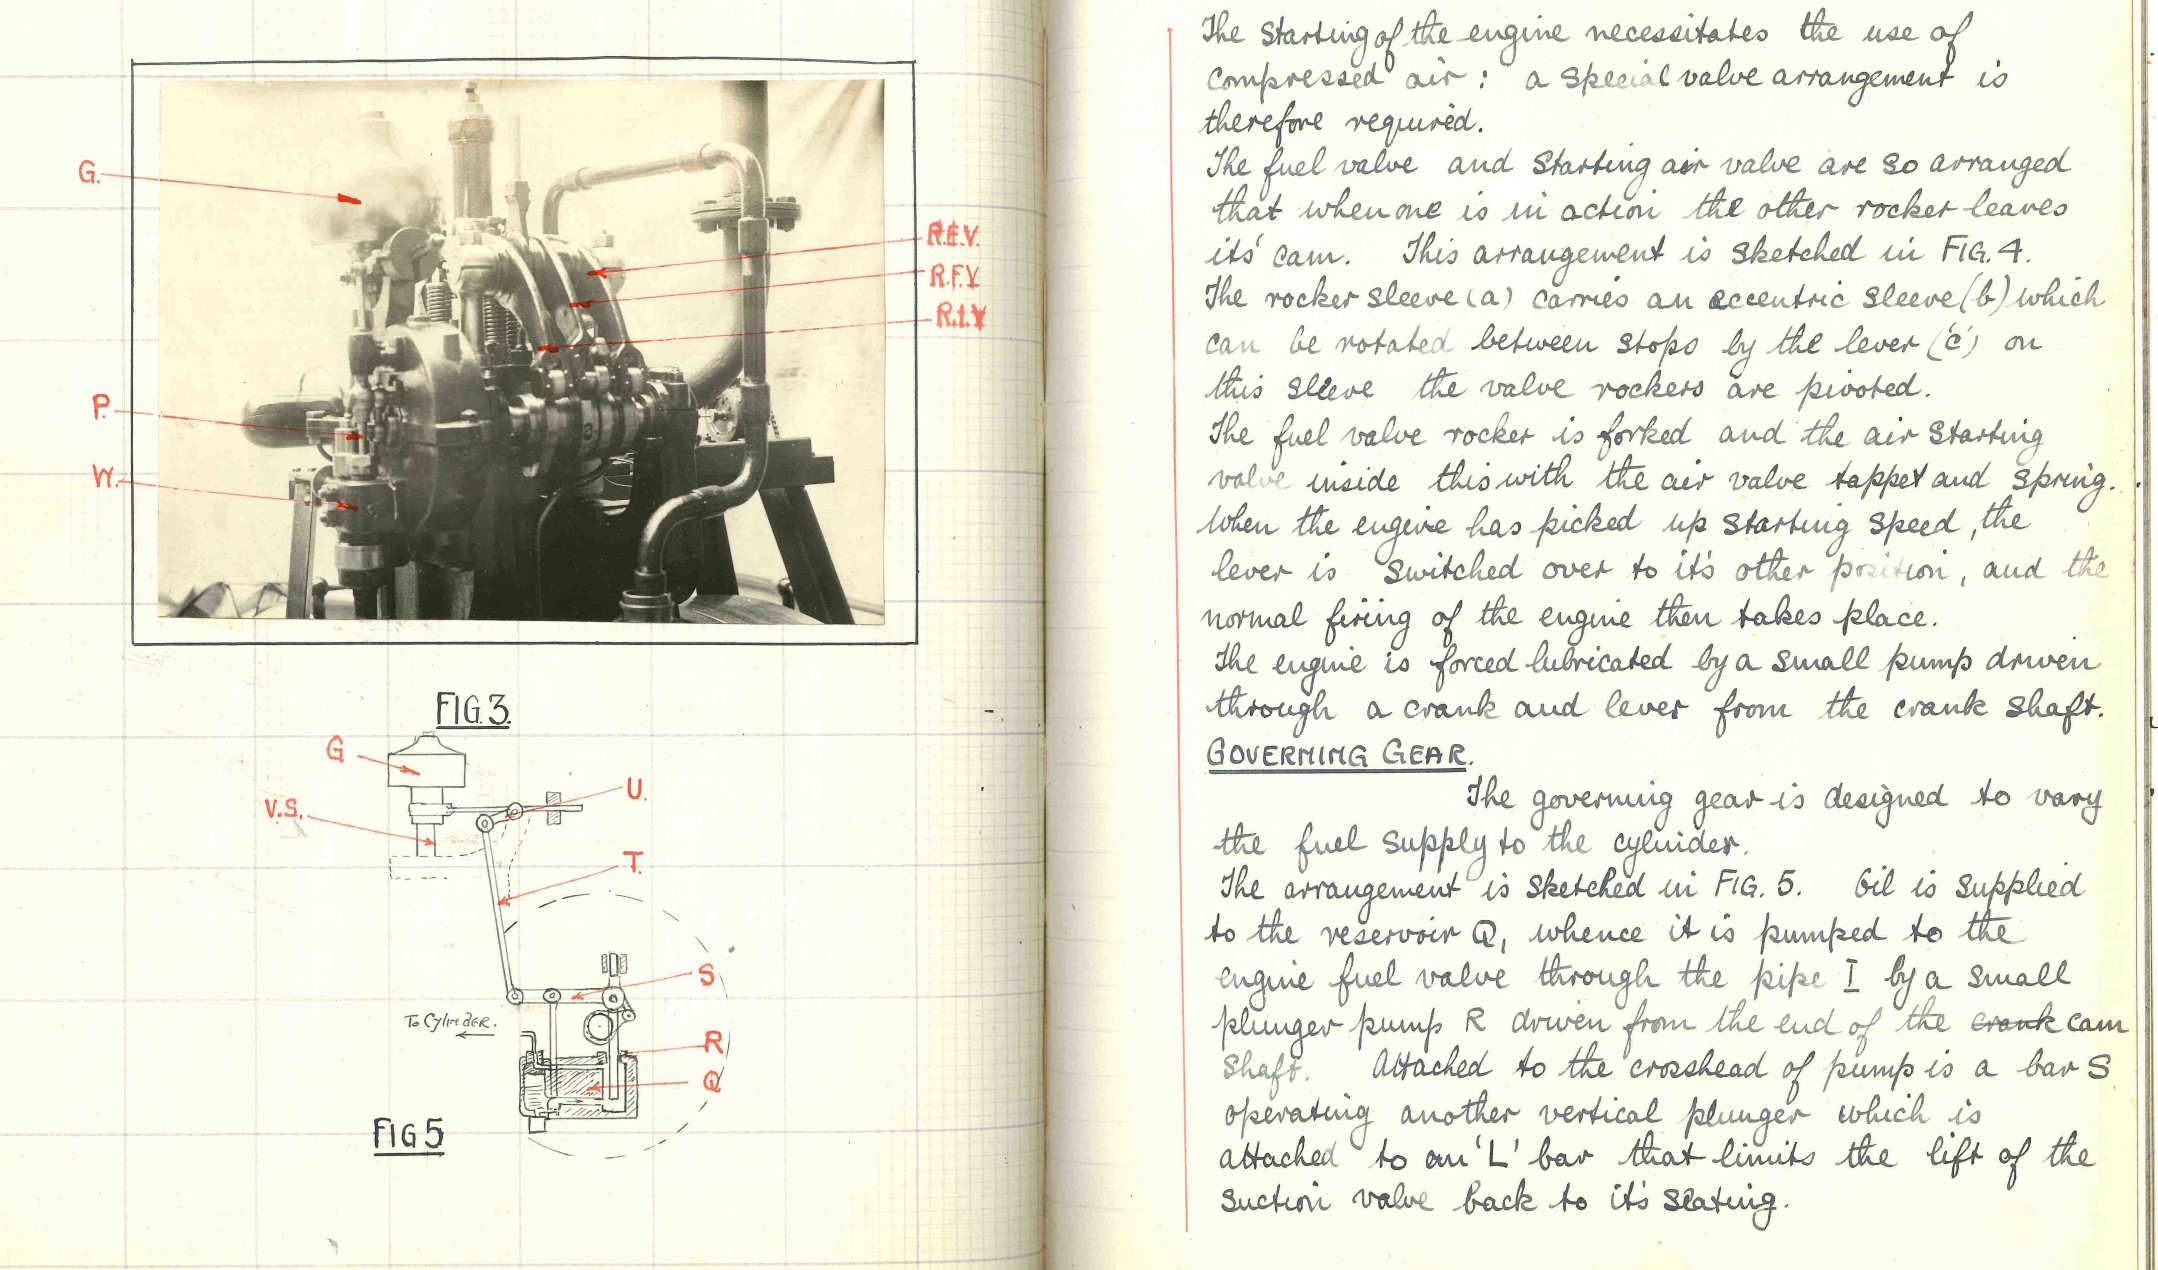 G.
R.E.V.
R.F.V
R.I.V
P.
W.
FIG.3.
G
U.
V.S.
T.
S
To Cylinder.
R
Q
FIG 5
The starting of the engine necessitates the use of
compressed air : a special valve arrangement is
therefore required.
The fuel valve and starting air valve are so arranged
that when one is in action the other rocker leaves
its' cam. This arrangement is sketched in FIG. 4.
The rocker sleeve (a) carries an eccentric sleeve (b) which
can be rotated between stops by the lever ('c') on
this sleeve the valve rockers are pivoted.
The fuel valve rocker is forked and the air starting
valve inside this with the air valve tappet and spring.
When the engine has picked up starting speed, the
lever is switched over to it's other position, and the
normal firing of the engine then takes place.
The engine is forced lubricated by a small pump driven
through a crank and lever from the crank shaft.
GOVERNING GEAR.
The governing gear is designed to vary
the fuel supply to the cylinder.
The arrangement is sketched in FIG. 5. Oil is supplied
to the reservoir Q, whence it is pumped to the
engine fuel valve through the pipe I by a small
plunger pump R driven from the end of the crank cam
shaft. Attached to the crosshead of pump is a bar S
operating another vertical plunger which is
attached to an 'L' bar that limits the lift of the
suction valve back to it's seating.